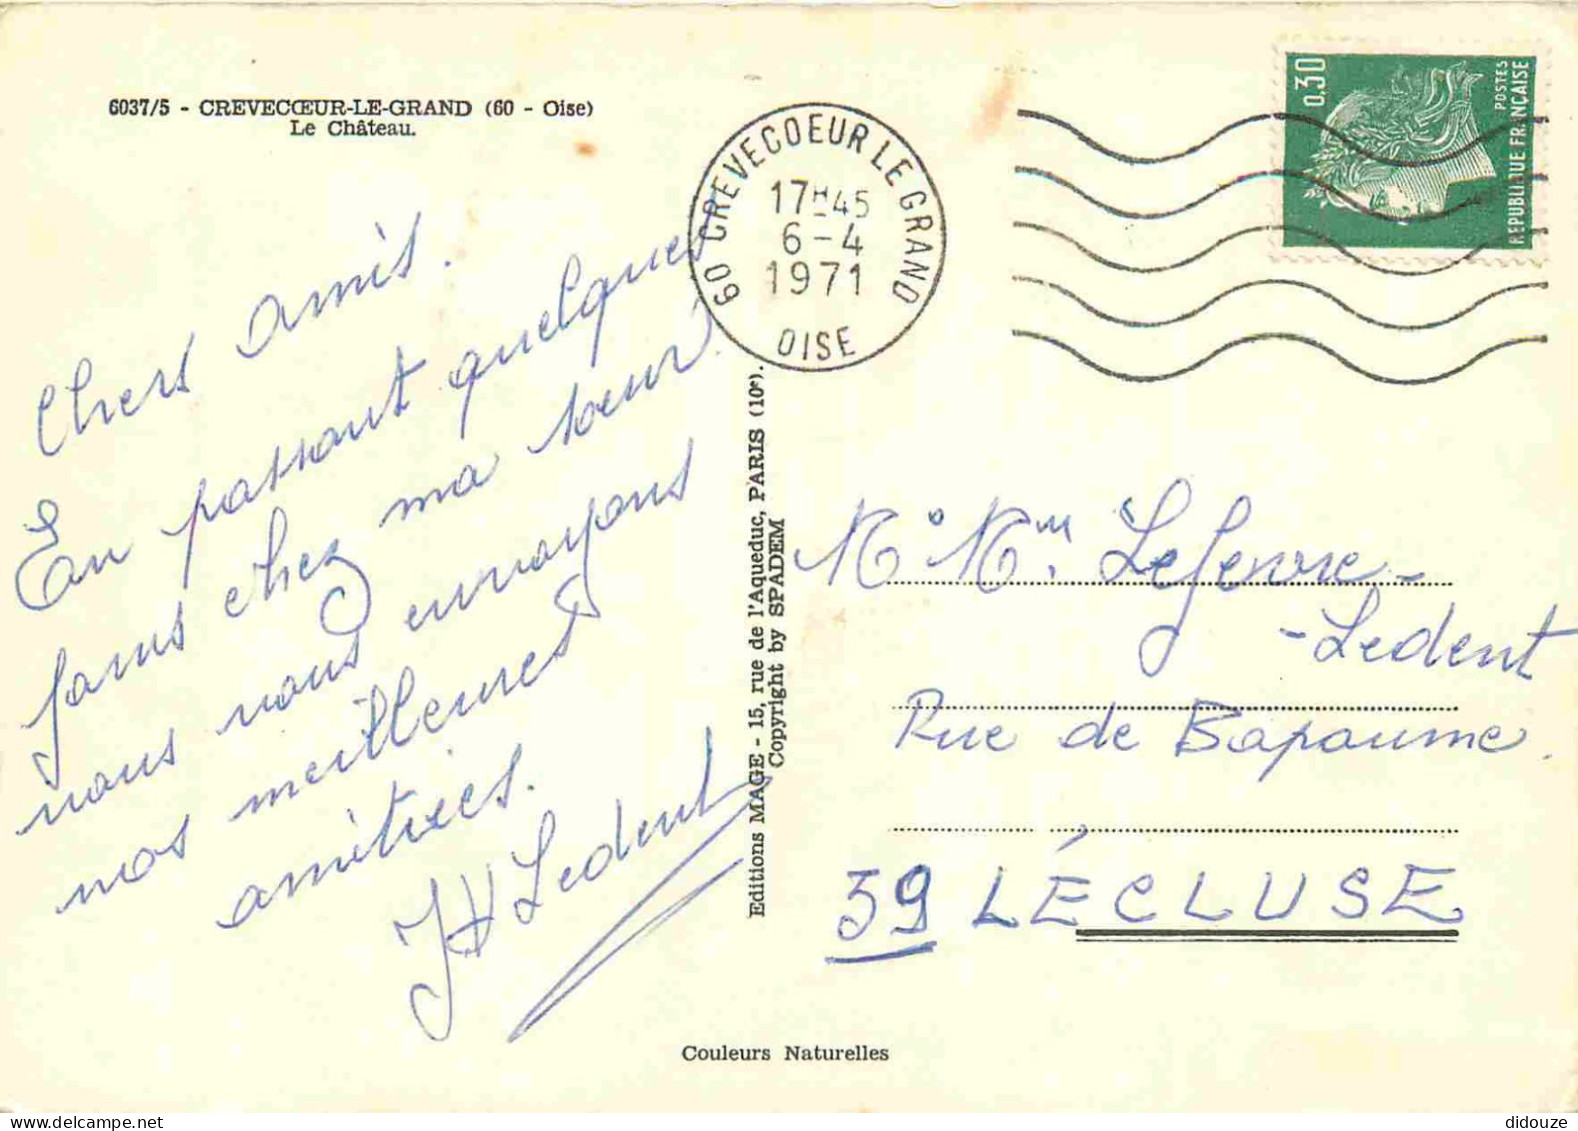 6037/5 - CREVECŒUR-LE-GRAND (60 - Oise)
Le Château.
60 CREVECOEUR LE GRAND
17H45
6-4
1971
OISE
0,30
POSTES
REPUBLIQUE FRANÇAISE
Chers amis.
En passant quelques
jours chez ma soeur,
nous vous envoyons
nos meilleures
amitiés.
Ledent
Editions MAGE - 15, rue de l'Aqueduc, PARIS (10e).
Copyright by SPADEM
M. Mm. Lefevre-
-Ledent
Rue de Bapaume
59 LÉCLUSE
Couleurs Naturelles
didouze